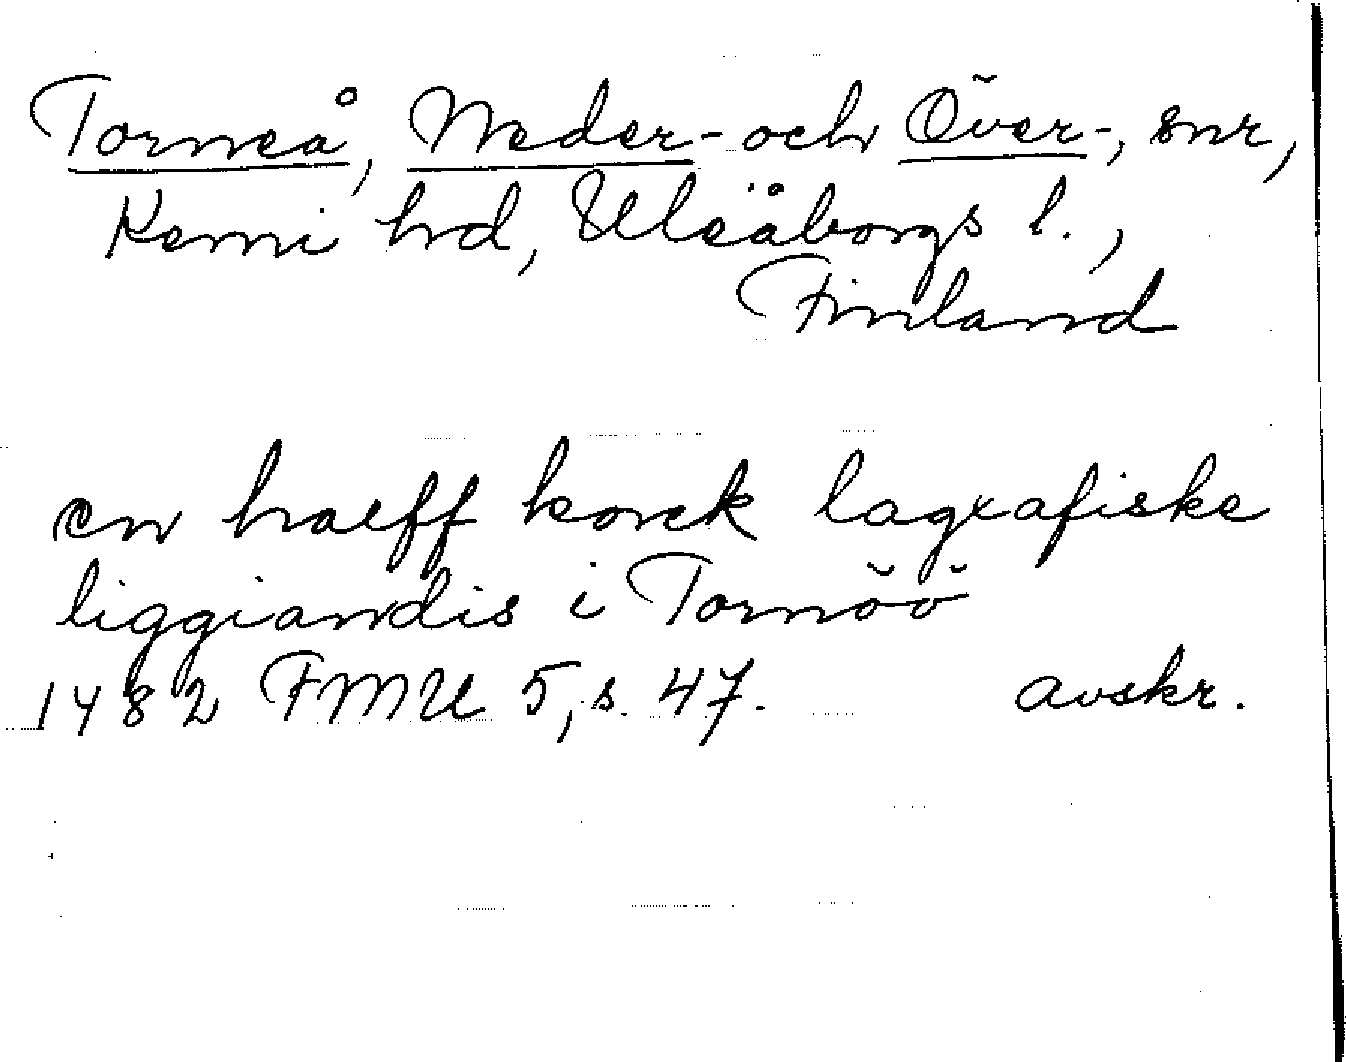 Torneå, Neder- och Över-, snr,
Kemi hd, Uleåborgs l.,
Finland
en halff korck lagxafiske
liggiandis i Tornöö
1482 FMU 5, s. 47. avskr.